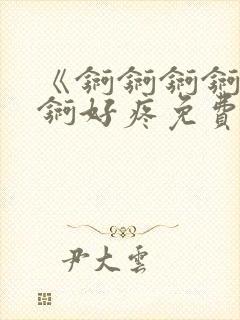 《錒錒錒錒
錒好疼免費
尹大雲